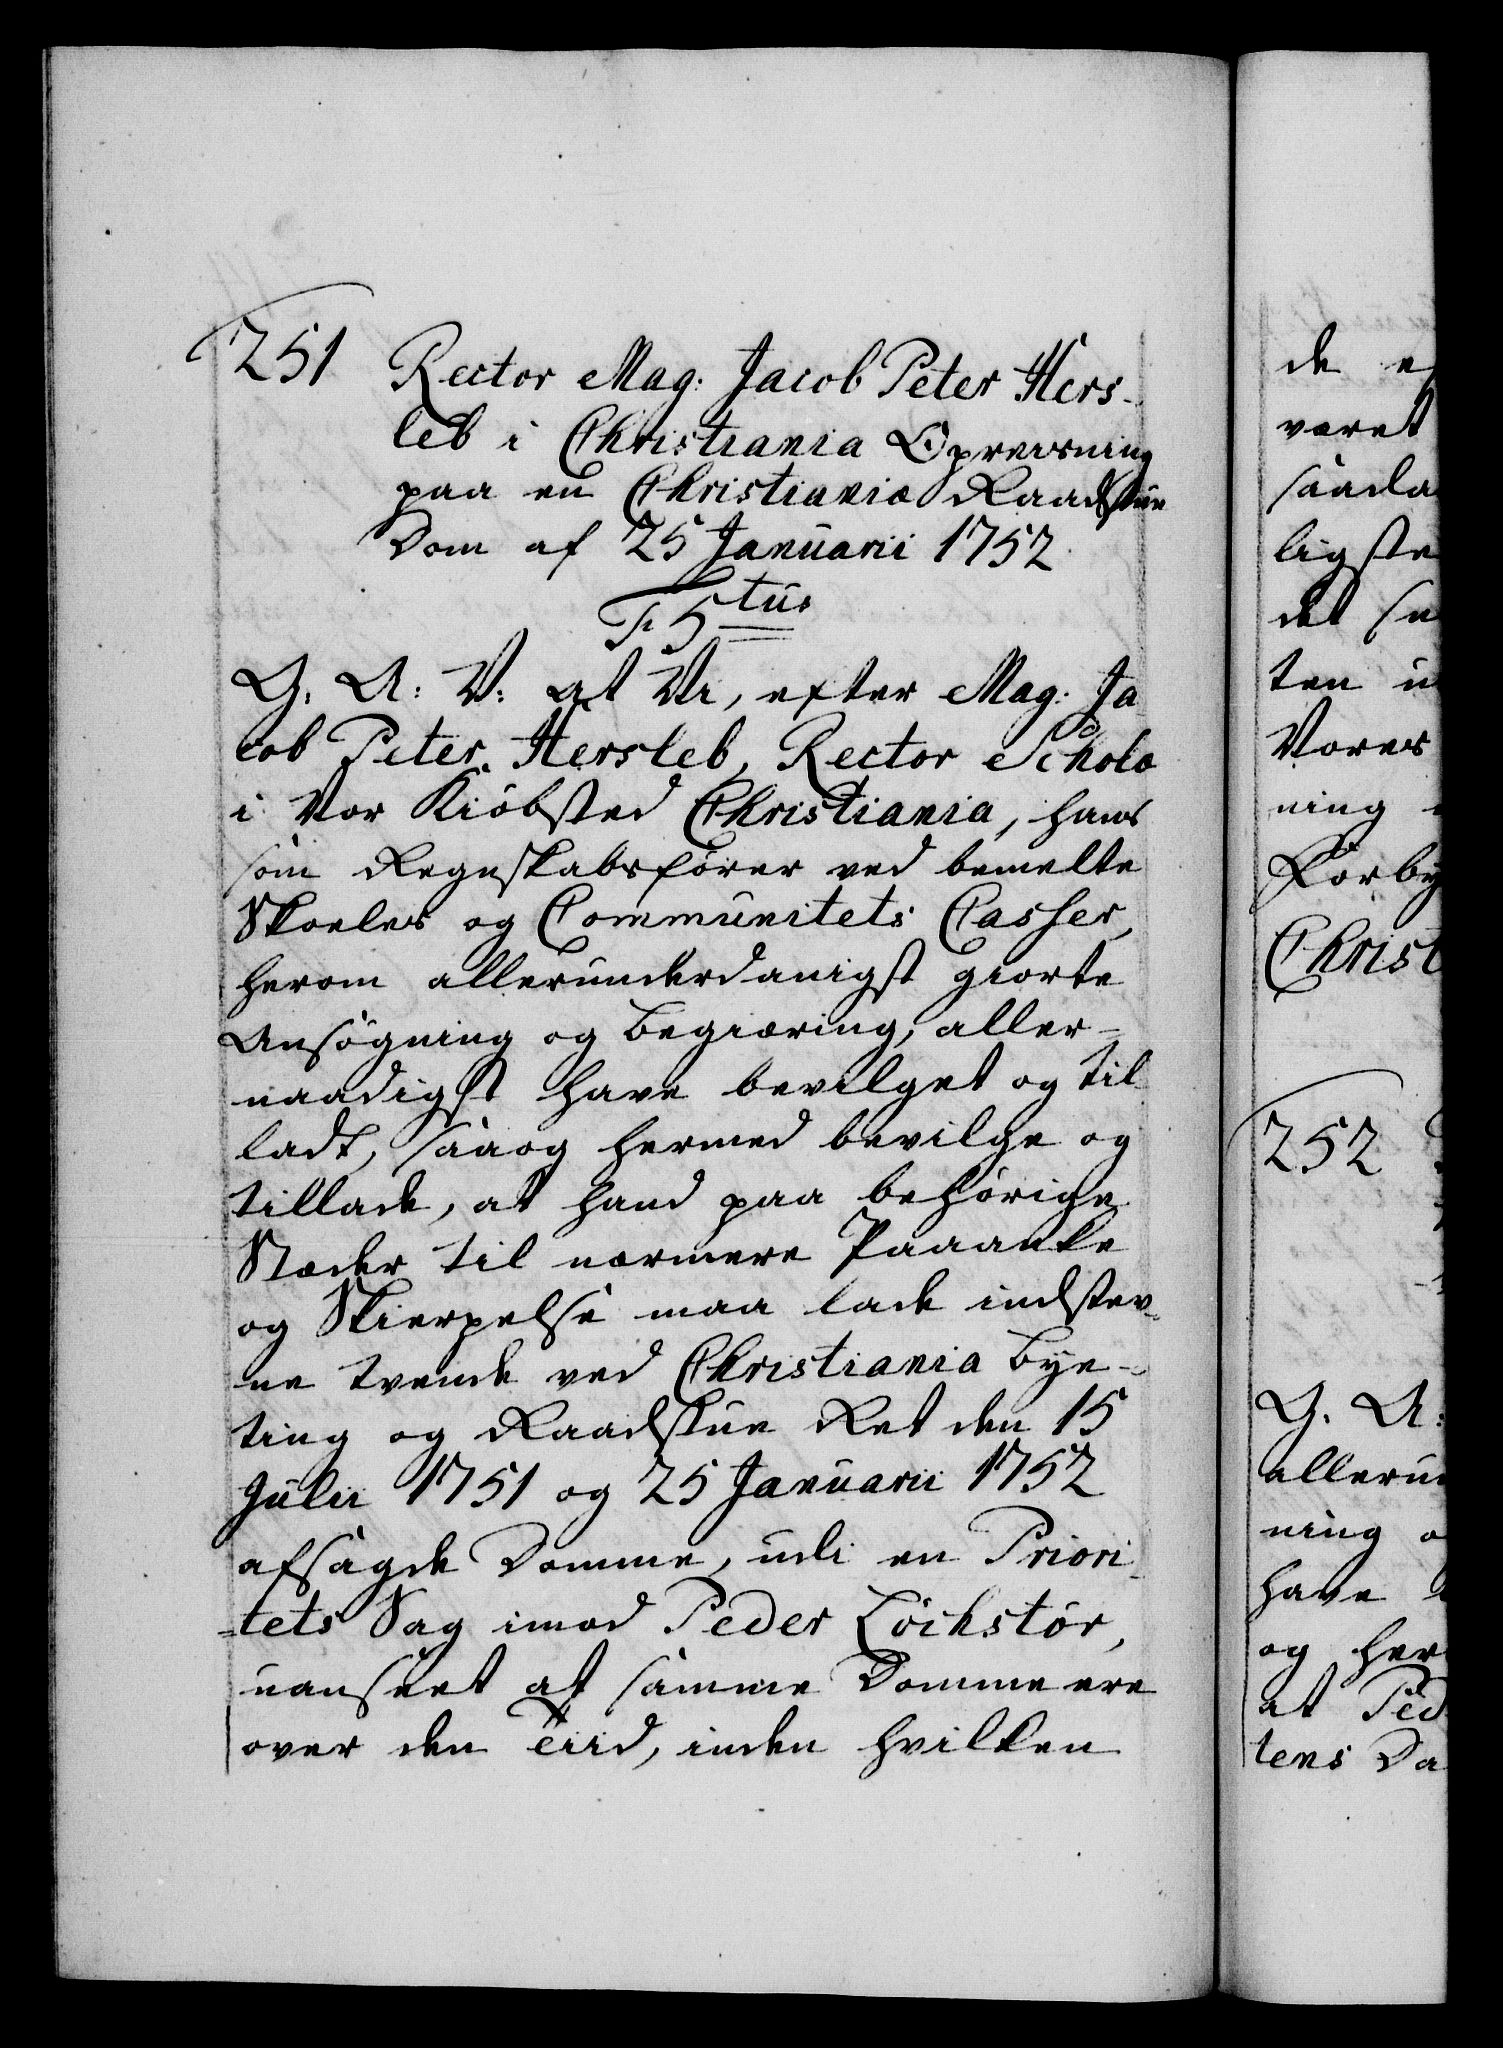 251 Rector Mag: Jacob Peter Hers-
leb i Christiania Opreisning
paa en Christianiæ Raadstue
Dom af 25 Januarii 1752
F 5tus
G. A: V: at Vi, efter Mag: Ja
cob Peter Hersleb, Rector Scholæ
i Vor Kiöbsted Christiania, hans
som Regnskabsfører ved bemelte
Skoeles og Communitets Casser,
herom allerunderdanigst giorte
Ansøgning og Begiæring, aller-
naadigst have bevilget og til
ladt, saaog hermed bevilge og
tillade, at hand paa behørige
Stæder til nærmere Paaanke
og Skierpelse maa lade indstev-
ne tvende ved Christiania Bye-
ting og Raadstue Ret den 15
Julii 1751 og 25 Januarii 1752
afsagde Domme, udi en Priori-
tets Sag imod Peder Löchstör,
uanseet at samme Domme ere
over den Tiid, inden hvilken
de
været
saada
ligste
det
ten
Vores
ning
Forby
Christ
252
G. A:
allerun
ning
have
og her
at Ped
tens Da